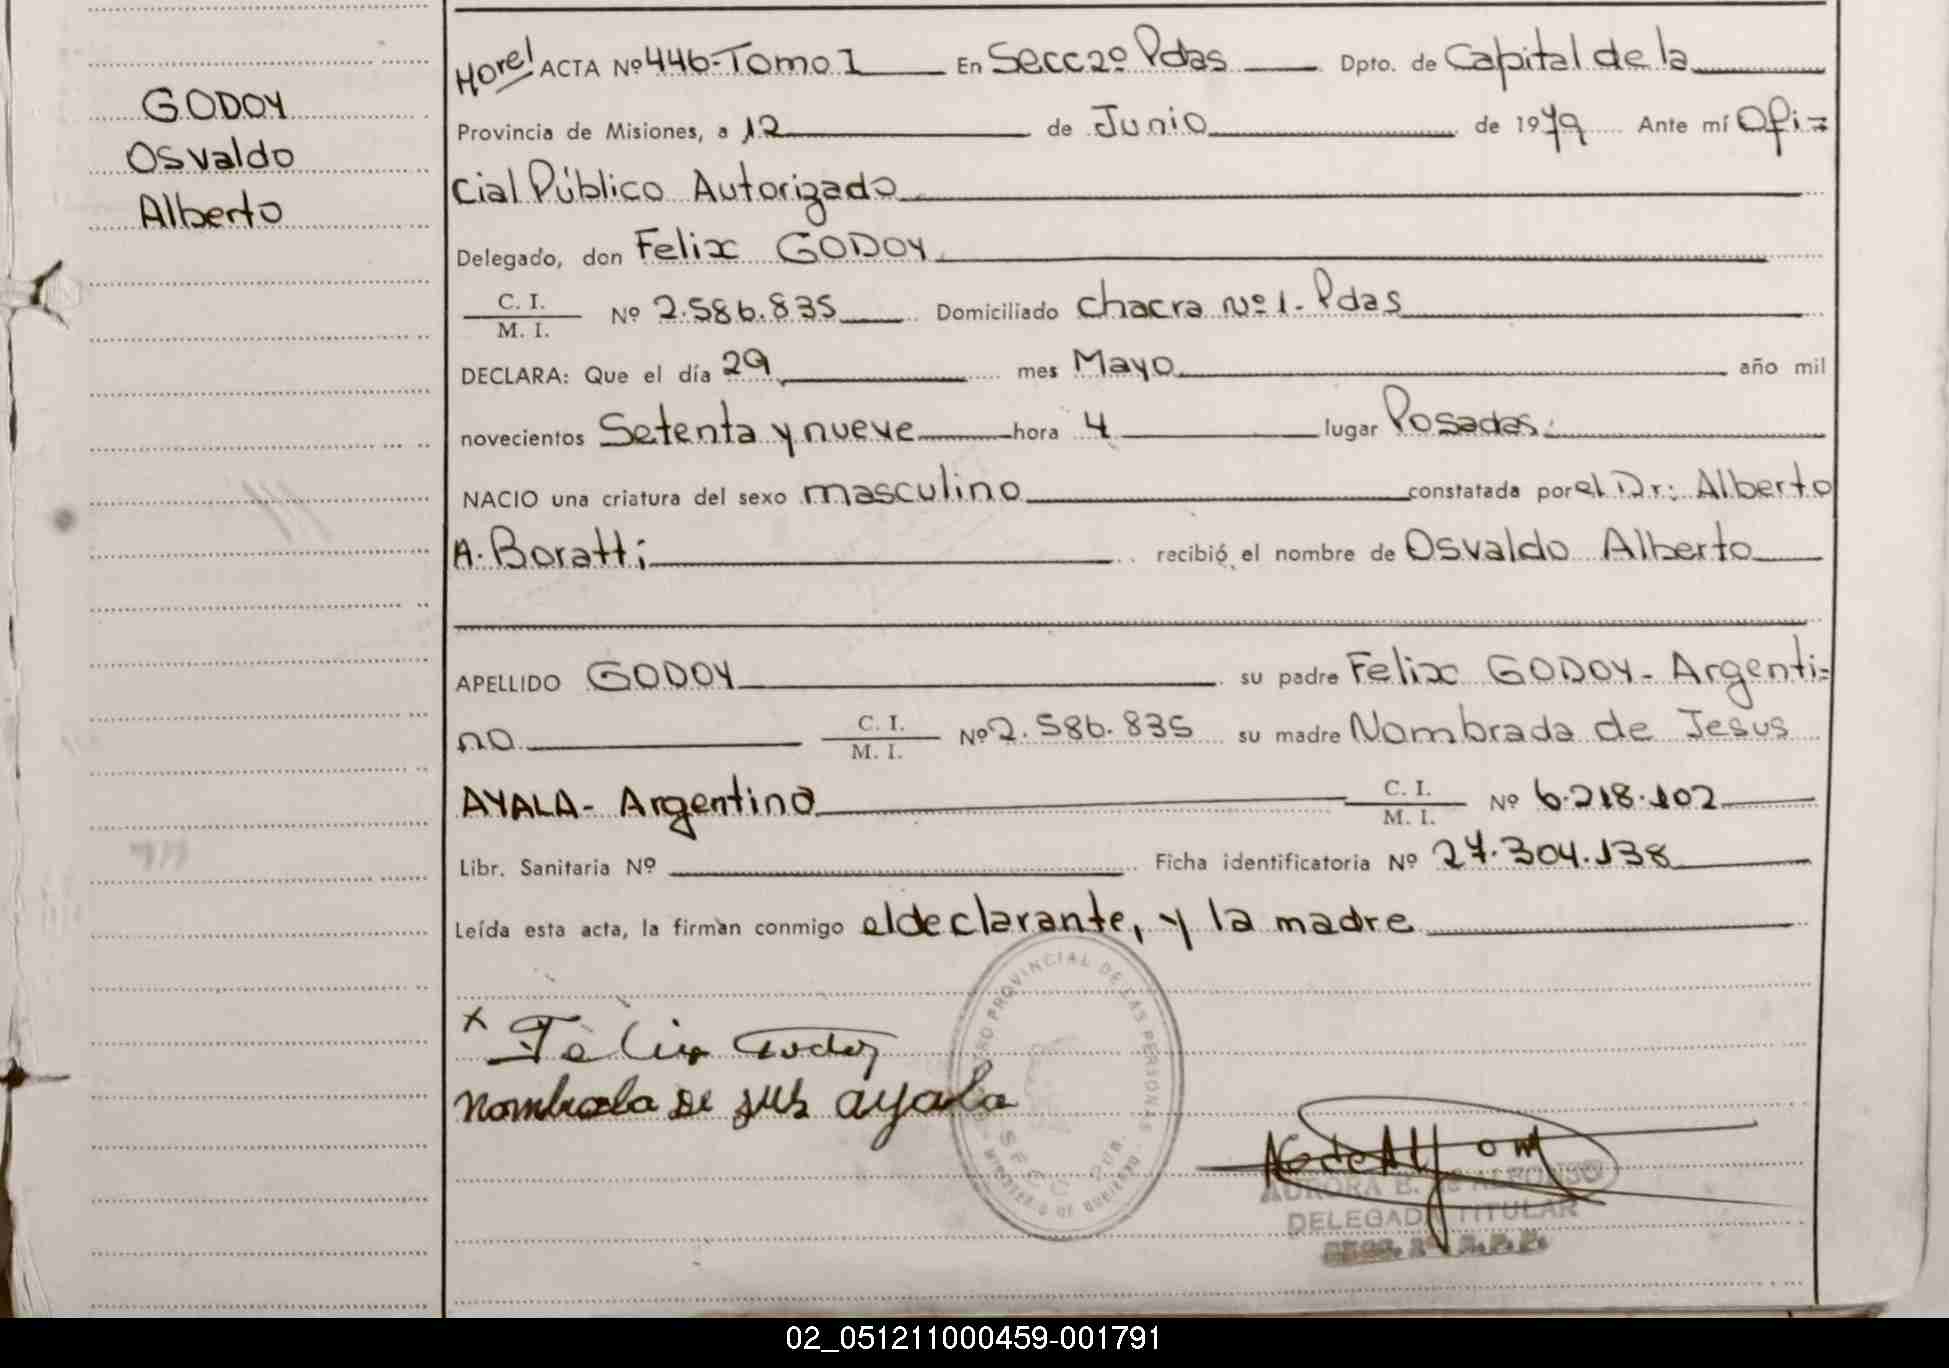 GODOY
Osvaldo
Alberto
ACTA Nº 446-Tomo I En Secc 2º Pdas Dpto. de Capital de la
Provincia de Misiones, a 12 de Junio de 1979 Ante mí Ofi=
cial Público Autorizado
Delegado, don Felix GODOY
C. I.
M. I. Nº 2.586.835 Domiciliado chacra Nº 1- Pdas
DECLARA: Que el día 29 mes Mayo año mil
novecientos Setenta y nueve hora 4 lugar Posadas.
NACIO una criatura del sexo masculino constatada por el Dr: Alberto
A. Boratti recibió el nombre de Osvaldo Alberto
APELLIDO GODOY su padre Felix GODOY- Argenti=
no C. I.
M. I. Nº 2.586.835 su madre Nombrada de Jesus
AYALA- Argentino C. I.
M. I. Nº 6.218.102
Libr. Sanitaria Nº Ficha identificatoria Nº 27.304.138
Leída esta acta, la firman conmigo el declarante, y la madre
x Felix Godoy
Nombrada de sus ayala
REGISTRO PROVINCIAL DE LAS PERSONAS
SECC 2DA.
AURORA B. de ALFONSO
DELEGADA TITULAR
02_051211000459-001791